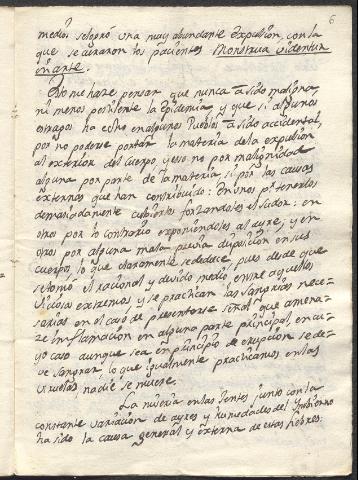 6
medio, se logró una muy abundante expulsion, con la
que se curaron los pacientes. Monstrua videntur
in arte.
Esto me haze pensar que nunca a sido maligna,
ni menos pestilente la Epidemia, y que si algunos
estragos ha echo en algunos Pueblos a sido accidental,
por no poderse portar la materia de la expulsion
al exterior del cuerpo, y eso no por malignidad
alguna por parte de la materia, si por las causas
externas que han contribuido: En unos pr. tenerlos
demasiadamente cubiertos forzandoles el sudor: en
otros por lo contrario exponiendolos al ayre; y en
otros por alguna mala previa disposicion en sus
cuerpos, lo que claramente se deduce, pues desde que
se tomó el racional y devido medio, entre aquellos
viciosos extremos, y se practican las sangrias nece-
sarias en el caso de presentarse señal que amena-
ze inflamacion en alguna parte principal, en cu-
yo caso aunque sea en principio de erupcion se de-
ve sangrar, lo que igualmente practicamos en las
viruelas, nadie se muere.
La miseria en las gentes junto con la
constante variacion de ayres y humedades del Ymbierno
ha sido la causa general y externa de estas fiebres.